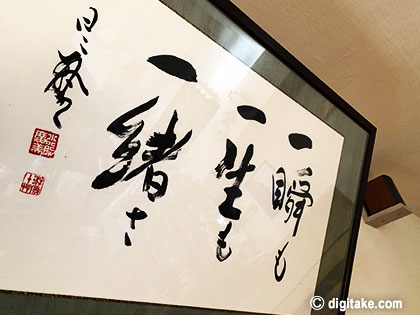 一瞬も
一生も
一緒さ
© digitake.com